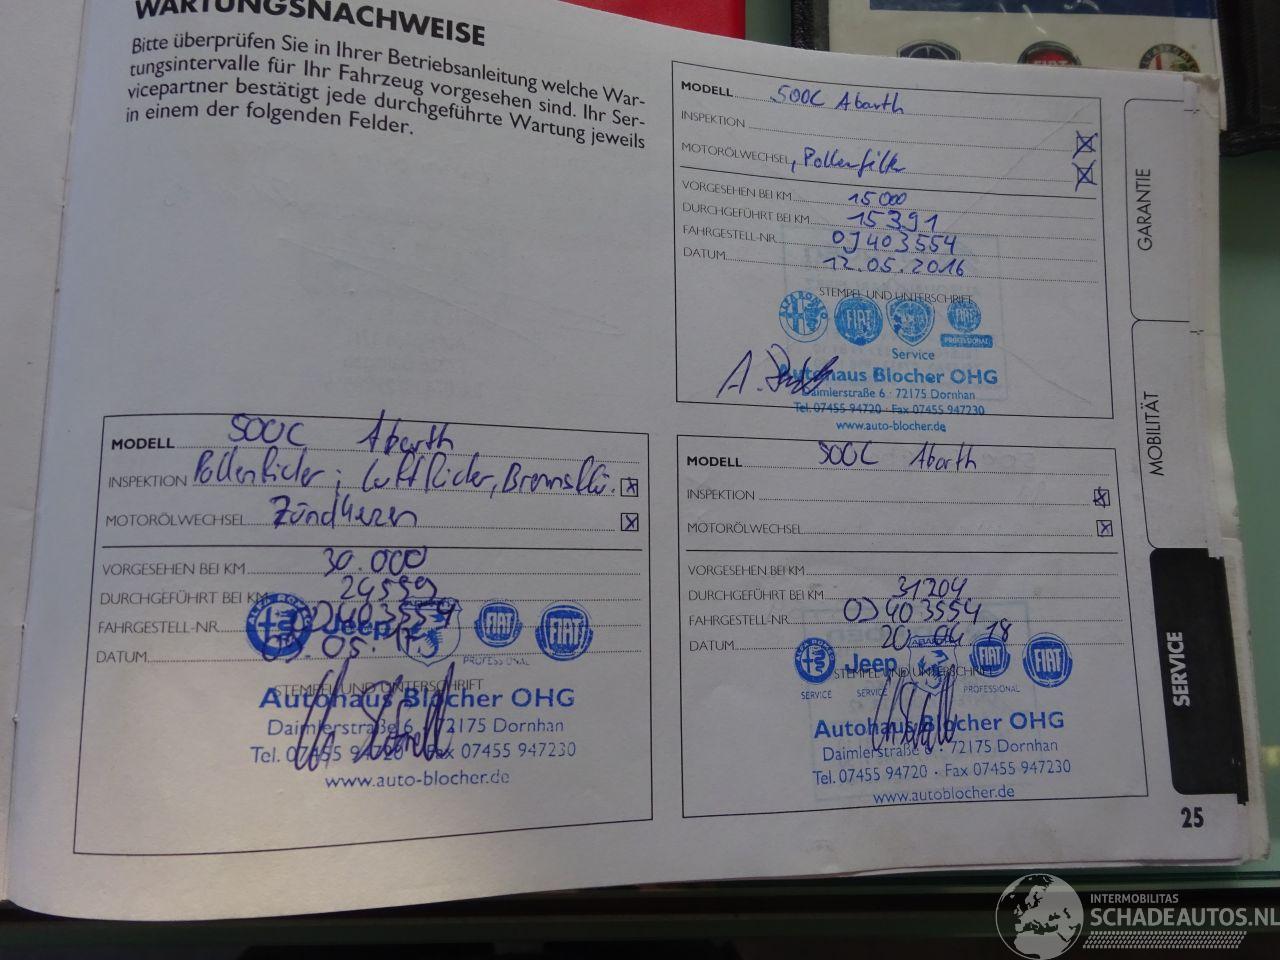 WARTUNGSNACHWEISE
Bitte überprüfen Sie in Ihrer Betriebsanleitung welche War-
tungsintervalle für Ihr Fahrzeug vorgesehen sind. Ihr Ser-
vicepartner bestätigt jede durchgeführte Wartung jeweils
in einem der folgenden Felder.
MODELL 500C Abarth
INSPEKTION
MOTORÖLWECHSEL, Pollenfilter
VORGESEHEN BEI KM 15000
DURCHGEFÜHRT BEI KM 15391
FAHRGESTELL-NR. 0J403554
DATUM 12.05.2016
STEMPEL UND UNTERSCHRIFT
ALFA ROMEO FIAT FIAT
PROFESSIONAL
Service
Autohaus Blocher OHG
Daimlerstraße 6 · 72175 Dornhan
Tel. 07455 94720 · Fax 07455 947230
www.auto-blocher.de
MODELL 500C Abarth
INSPEKTION Pollenfilter; Luftfilter, Bremsflü.
MOTORÖLWECHSEL Zündkerzen
VORGESEHEN BEI KM 30.000
DURCHGEFÜHRT BEI KM 24599
FAHRGESTELL-NR. 0J403554
DATUM 09.05.17
Jeep FIAT FIAT
PROFESSIONAL
STEMPEL UND UNTERSCHRIFT
Autohaus Blocher OHG
Daimlerstraße 6 · 72175 Dornhan
Tel. 07455 94720 · Fax 07455 947230
www.auto-blocher.de
MODELL 500C Abarth
INSPEKTION
MOTORÖLWECHSEL
VORGESEHEN BEI KM
DURCHGEFÜHRT BEI KM 31204
FAHRGESTELL-NR. 0J403554
DATUM 20.04.18
Jeep ABARTH FIAT FIAT
STEMPEL UND UNTERSCHRIFT
SERVICE SERVICE PROFESSIONAL
Autohaus Blocher OHG
Daimlerstraße 6 · 72175 Dornhan
Tel. 07455 94720 · Fax 07455 947230
www.autoblocher.de
GARANTIE
MOBILITÄT
SERVICE
25
FIAT
INTERMOBILITAS
SCHADEAUTOS.NL